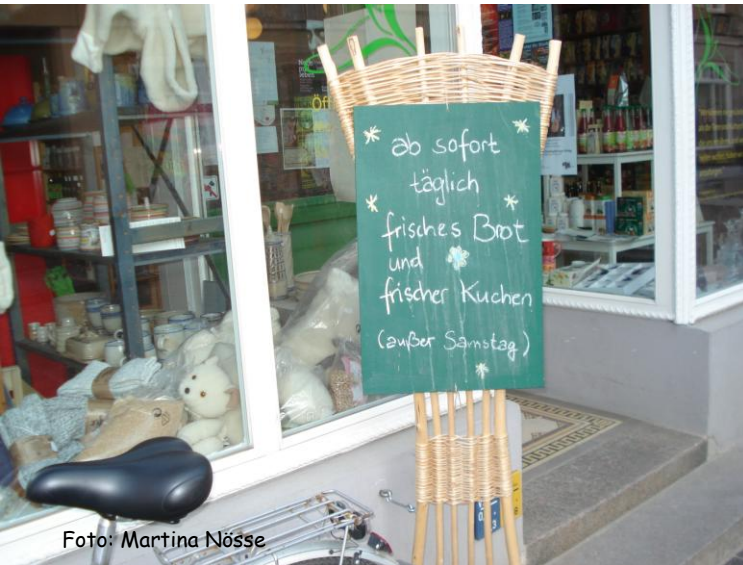 ab sofort
täglich
frisches Brot
und
frischer Kuchen
(außer Samstag)
Foto: Martina Nösse